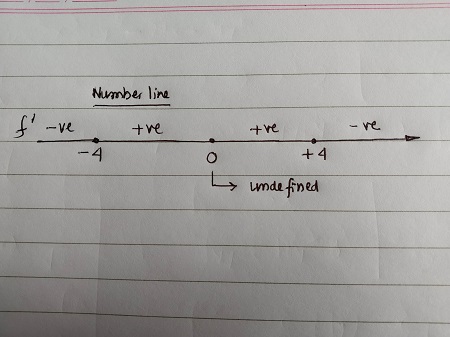 Number line
f' -ve +ve +ve -ve
-4 0 +4
undefined